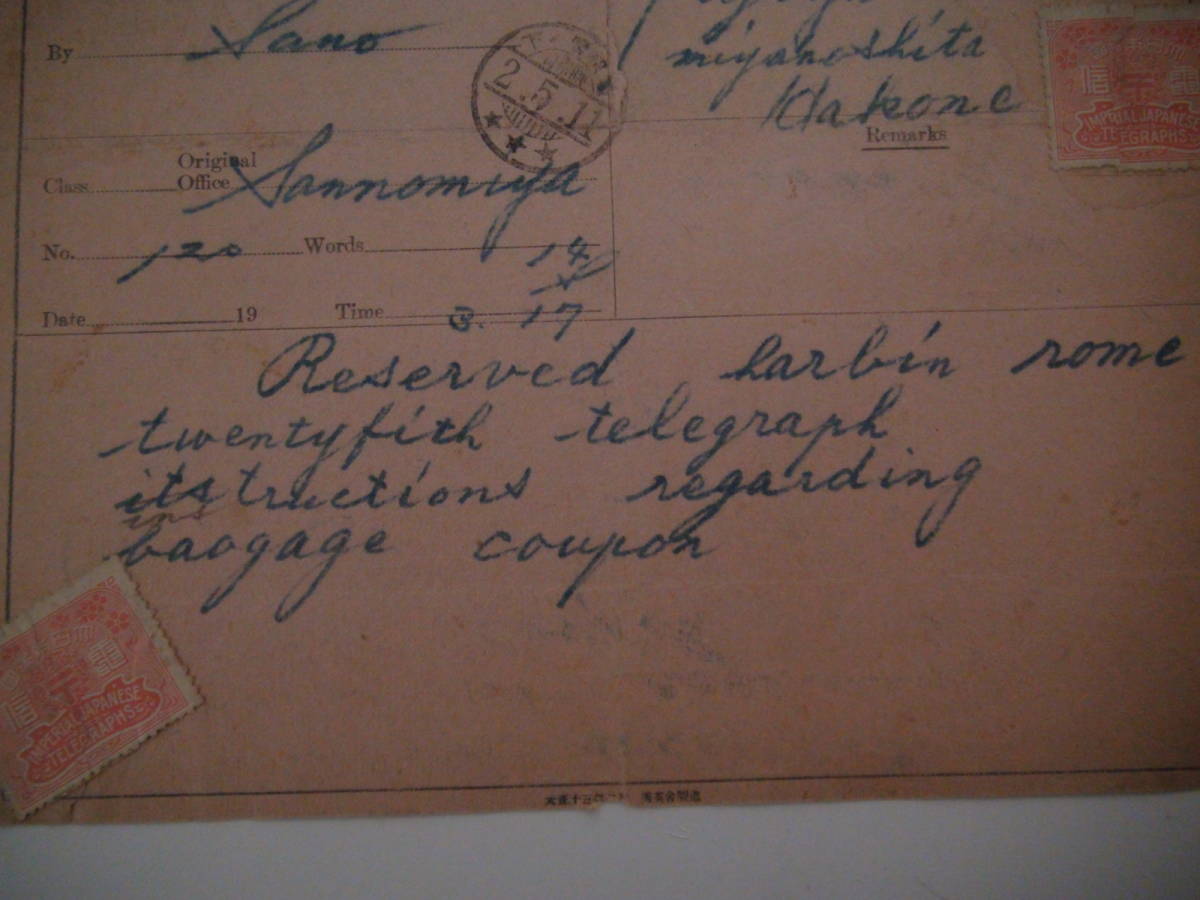 By Sano
miyanoshita
Hakone
2.5.11
Remarks
IMPERIAL JAPANESE
TELEGRAPHS
Class Original Office Sannomiya
No. 120 Words 14
Date 19 Time 3. 17
Reserved harbin rome
twentyfith telegraph
itstructions regarding
ins
baogage coupon
IMPERIAL JAPANESE
TELEGRAPHS